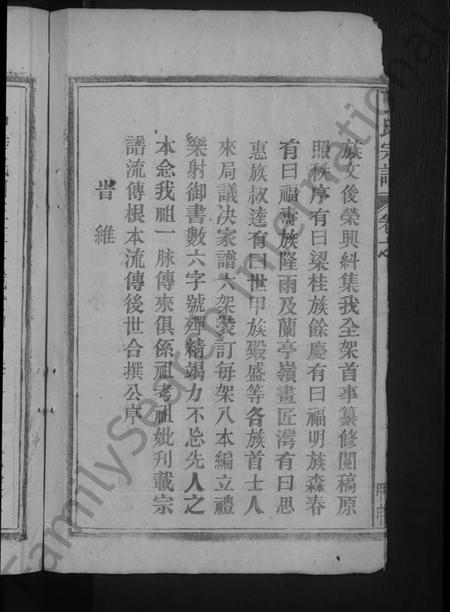 族文後榮興糾集我全架首事纂修閱稿原
照秩序有曰梁桂族餘慶有曰福明族森春
有曰福壽族隆雨及蘭亭嶺畫匠灣有曰思
惠族叔達有曰世甲族殿盛等各族首士人
來局議決家譜六架裝訂每架八本編立禮
樂射御書數六字號殫精竭力不忘先人之
本念我祖一脉傳來俱係祖考祖妣刋載宗
譜流傳根本流傳後世合撰公序
旹維
氏宗譜
FamilySearch International